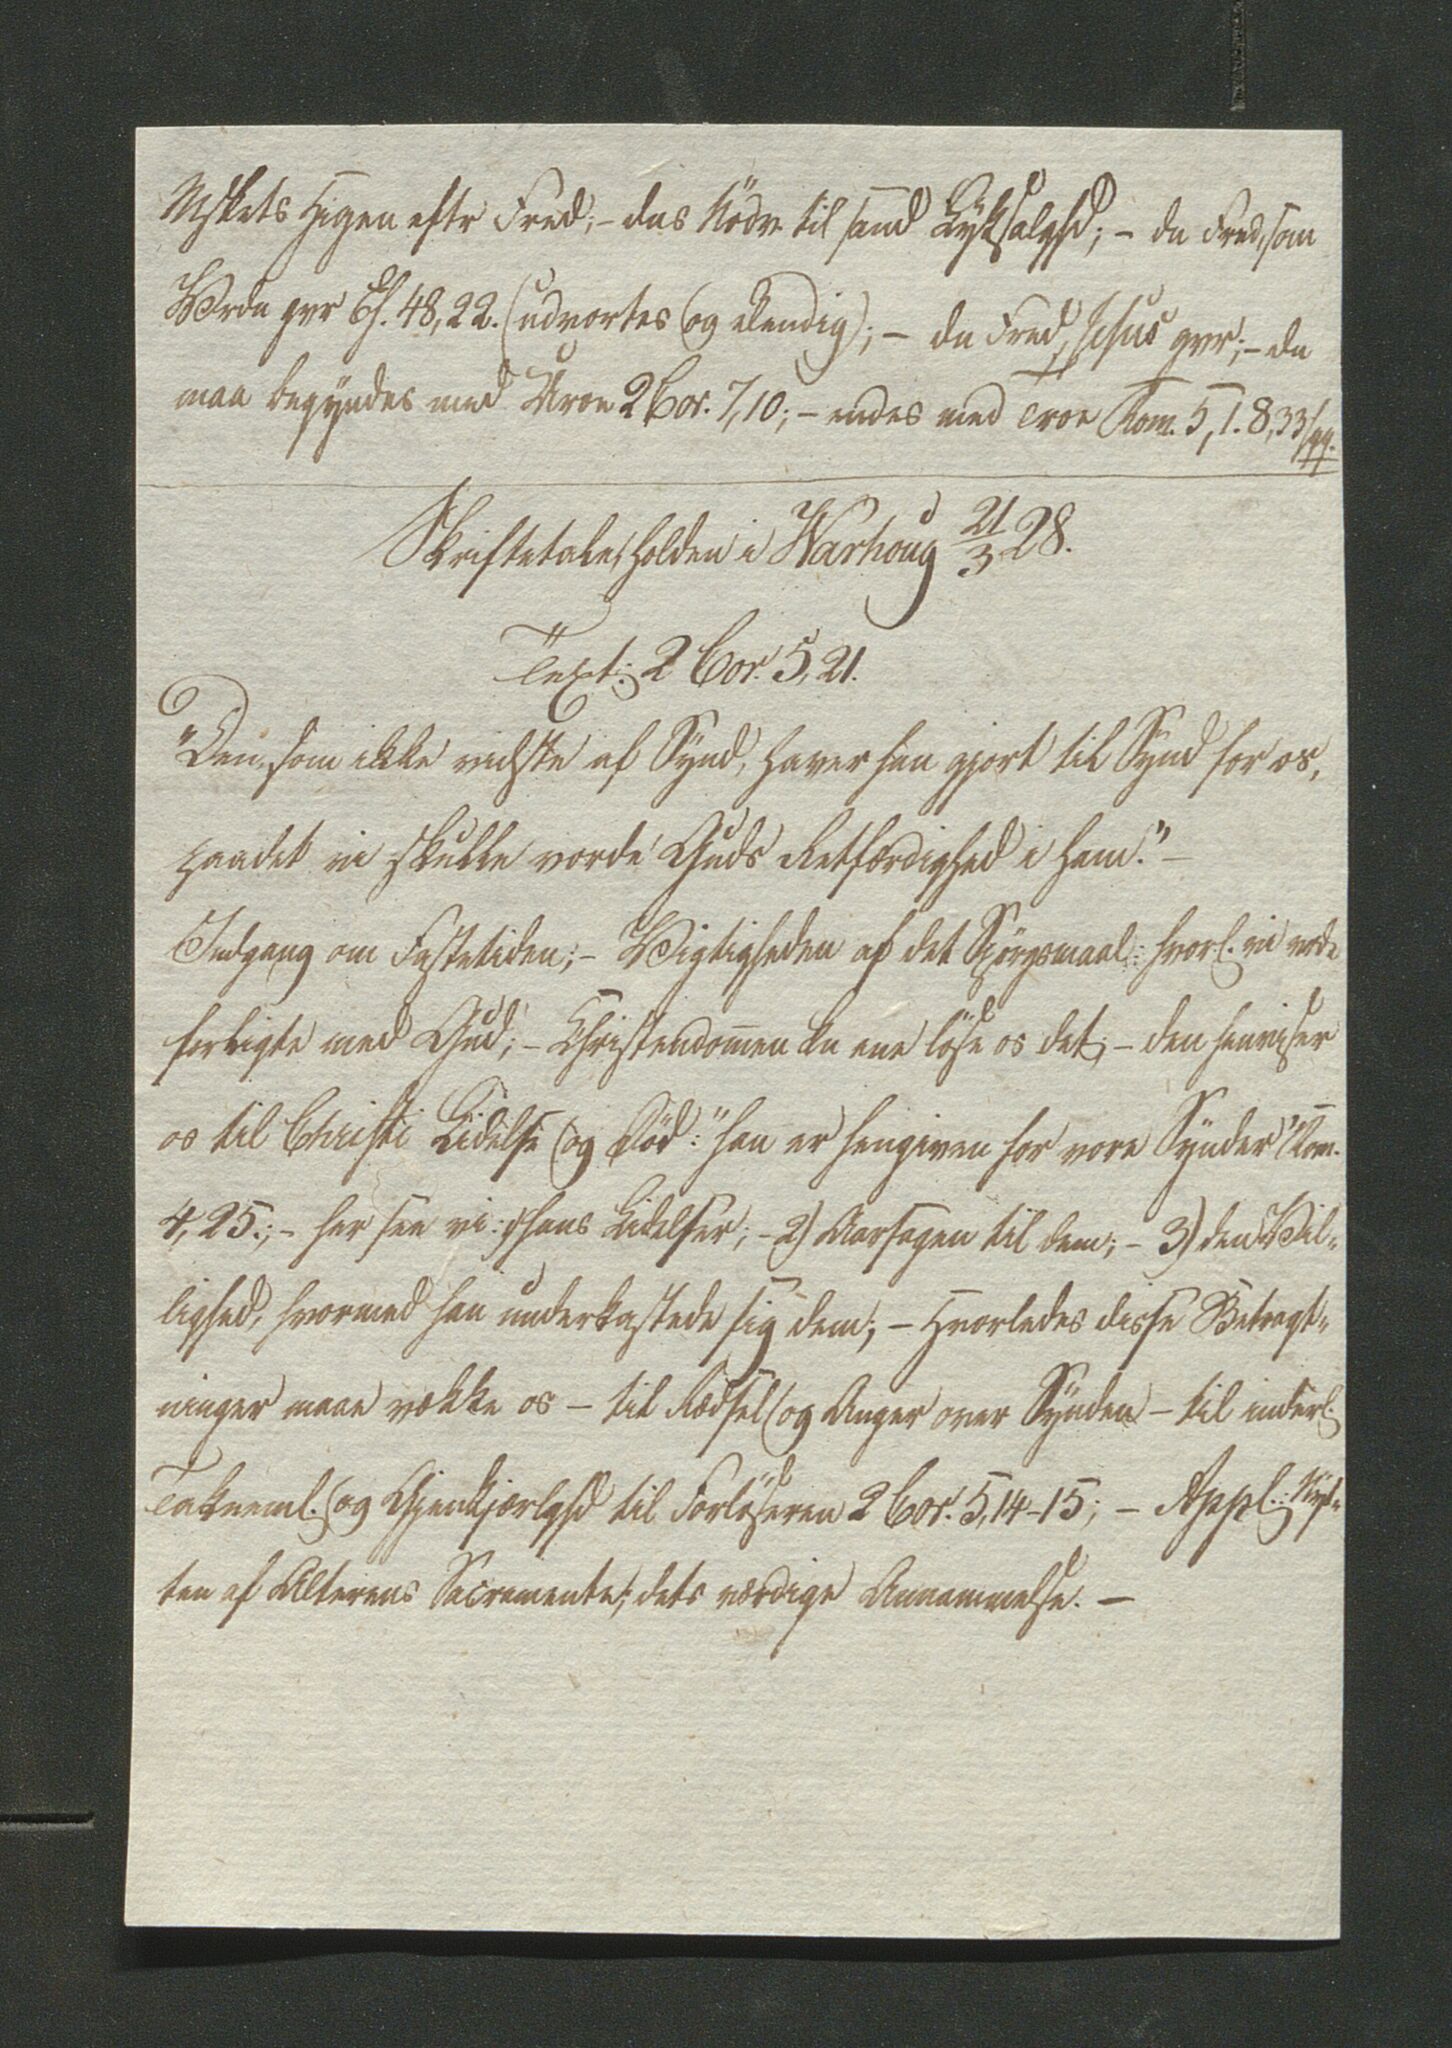 Mskets Higen eftr Fred; – das Nödv. til sand Lyksalghd; – dn Fred, som
Vrdn gvr Es. 48,22. (udvortes og elendig); – dn Fred, Jesus gvr; – dn
maa begyndes med Uroe 2 Cor. 7,10; – endes med Troe Rom. 5,1. 8,33 sqq.
Skriftetale, holden i Warhoug 21/3 28.
Text: 2 Cor. 5,21.
"Den, som ikke vidste af Synd, haver han gjort til Synd for os,
paadet vi skulle vorde Guds Retfærdighed i ham." –
Indgang om Fastetiden; – Vigtigheden af det Spörgsmaal: hvorl. vi vorde
forligte med Gud; – Christendom̄en kn ene löse os det; – den henviser
os til Christi Lidelse og Död: "han er hengiven for vore Synder" Rom.
4,25.; – her see vi: 1) hans Lidelser; – 2) Aarsagen til dem; – 3) den Vil-
lighed, hvormed han underkastede sig dem; – Hvorledes disse Betragt-
ninger maae vække os – til Rædsel og Anger over Synden – til inderl.
Takneml. og Gjenkjærlghd til Forlöseren 2 Cor. 5,14–15; – Appl.: Nyt-
ten af Alterens Sacramente; dets værdige Annammelse. –